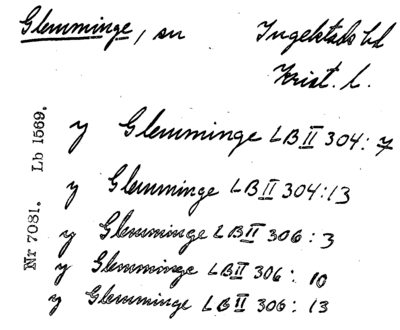 Glemminge, sn Ingelstads hd
Krist. l.
y Glemminge LB II 304:7
y Glemminge LB II 304:13
y Glemminge LB II 306:3
y Glemminge LB II 306:10
y Glemminge LB II 306:13
Nr 7081. Lb 1569.